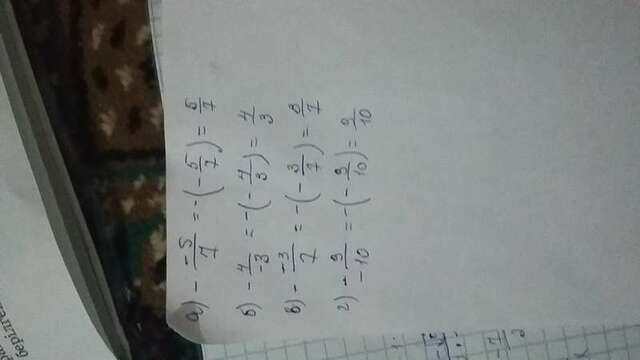 а) - -5/7 = -(-5/7) = 5/7
б) - 4/-3 = -(-4/3) = 4/3
в) - -3/7 = -(-3/7) = 3/7
г) - 9/-10 = -(-9/10) = 9/10